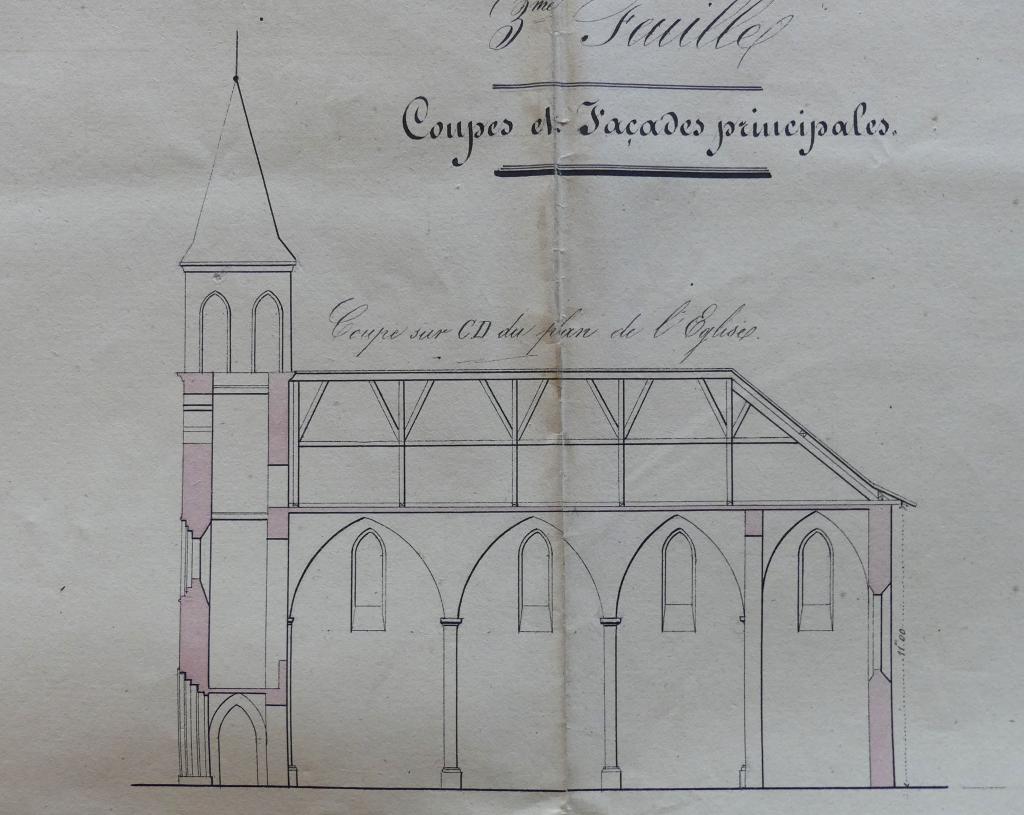 3me Feuille
Coupes et Façades principales.
Coupe sur CD du plan de l'Eglise.
11m00